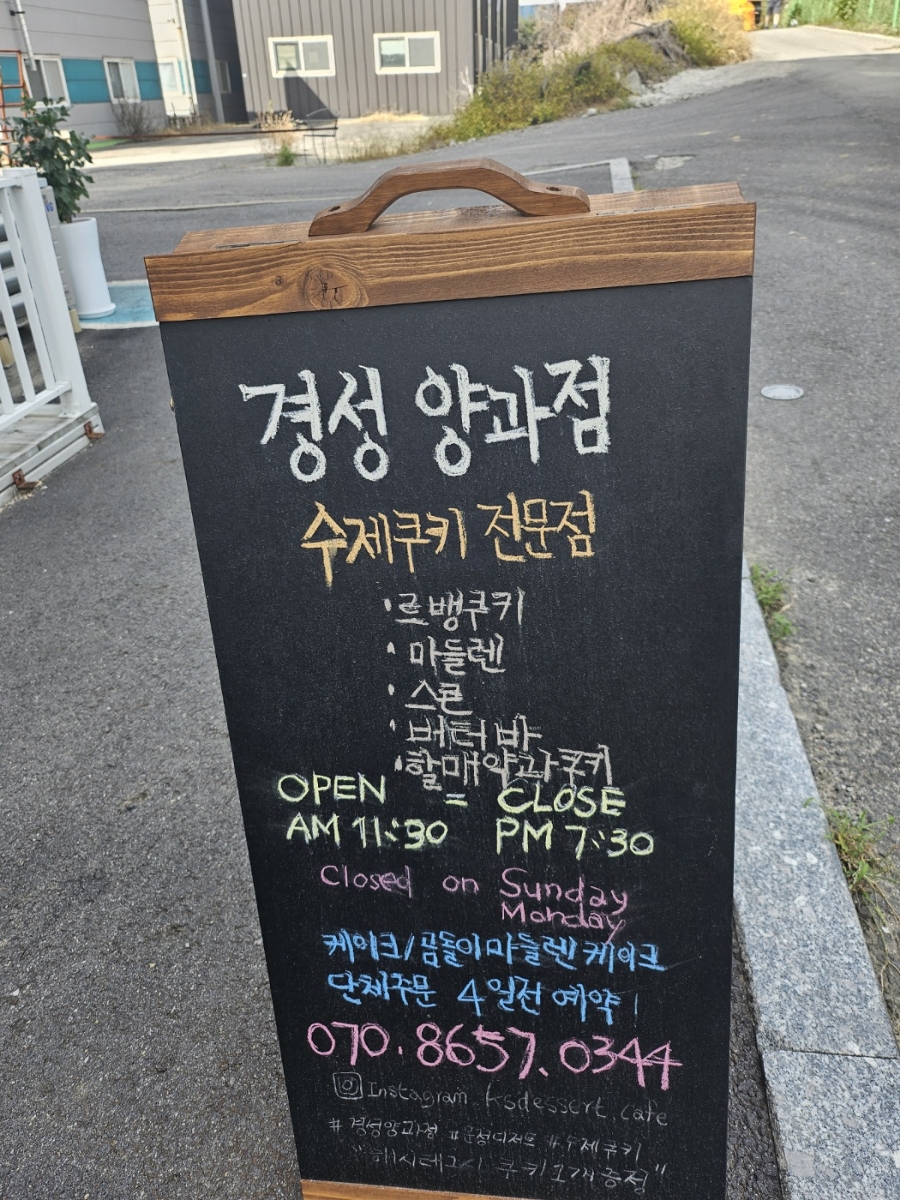 경성 양과점
수제쿠키 전문점
· 르뱅쿠키
· 마들렌
· 스콘
· 버터 바
· 할매약과쿠키
OPEN = CLOSE
AM 11:30 PM 7:30
Closed on Sunday
Monday
케이크/곰돌이마들렌케이크
단체주문 4일전 예약!
070.8657.0344
Instagram. ksdessert.cafe
#경성양과점 #운정디저트 #수제쿠키
"해시태그시 쿠키1개증정"